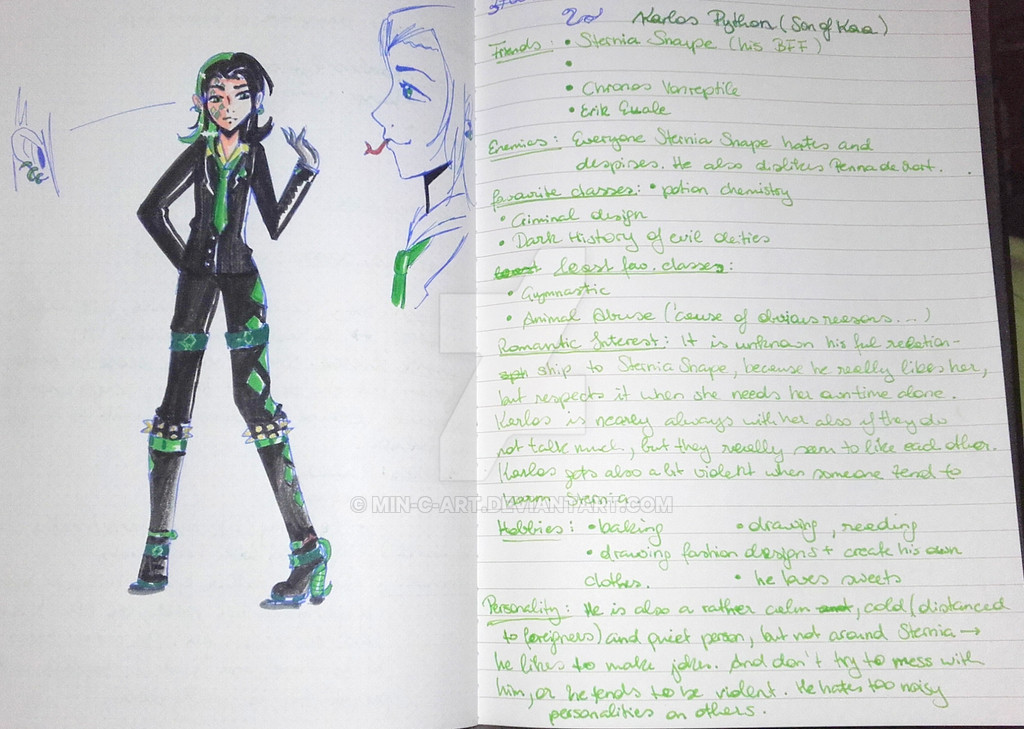 Karlos Python (Son of Kaa)
Friends: • Sternia Snaype (his BFF)
•
• Chronos Vonreptile
• Erik Ewale
Enemies: Everyone Sternia Snape hates and
despises. He also dislikes Penna de Wart.
favourite classes: • potion chemistry
• Criminal design
• Dark History of evil deities
Least fav. classes:
• Gymnastic
• Animal Abuse ('cause of obvious reasons...)
Romantic Interest: It is unknown his ful relation-
ship to Sternia Snape, because he really likes her,
but respects it when she needs her own time alone.
Karlos is nearly always with her also if they do
not talk much, but they really seem to like each other.
Karlos gets also a bit violent when someone tend to
harm Sternia
© MIN-C-ART.DEVIANTART.COM
Hobbies: • baking • drawing, reading
• drawing fashion designs + create his own
clothes. • he loves sweets
Personality: He is also a rather calm, cold (distanced
to foreigners) and quiet person, but not around Sternia →
he likes to make jokes. And don't try to mess with
him, or he tends to be violent. He hates too noisy
personalities on others.